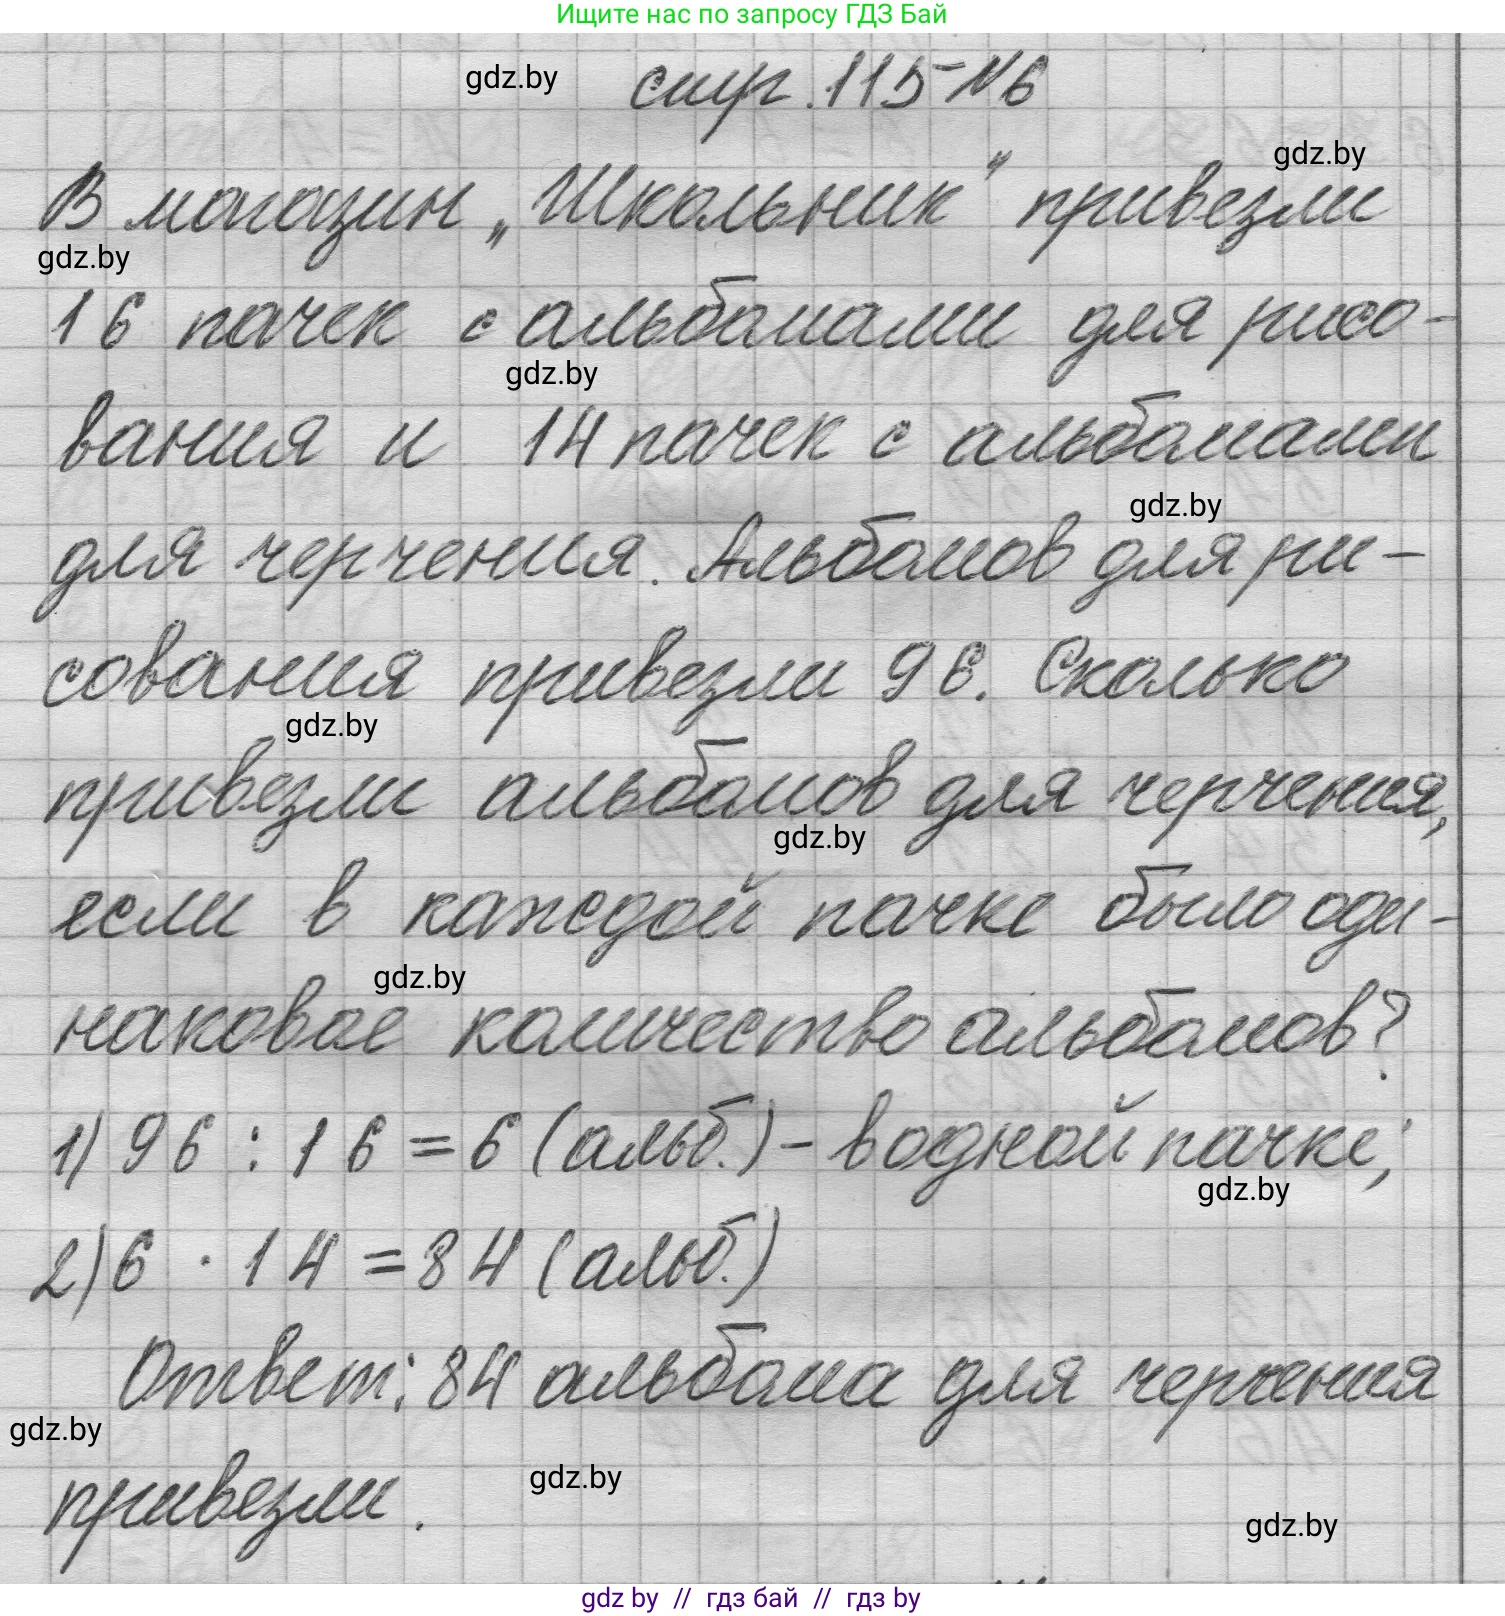 Ищите нас по запросу ГДЗ Бай
gdz.by
стр. 115 №6
gdz.by
В магазин „Школьник" привезли
gdz.by
16 пачек с альбомами для рисо-
gdz.by
вания и 14 пачек с альбомами
gdz.by
для черчения. Альбомов для ри-
сования привезли 96. Сколько
gdz.by
привезли альбомов для черчения,
gdz.by
если в каждой пачке было оди-
gdz.by
наковое количество альбомов?
1) 96 : 16 = 6 (альб.) - в одной пачке;
gdz.by
2) 6 · 14 = 84 (альб.)
Ответ: 84 альбома для черчения
gdz.by
привезли.
gdz.by
gdz.by
gdz by // гдз бай // гдз by